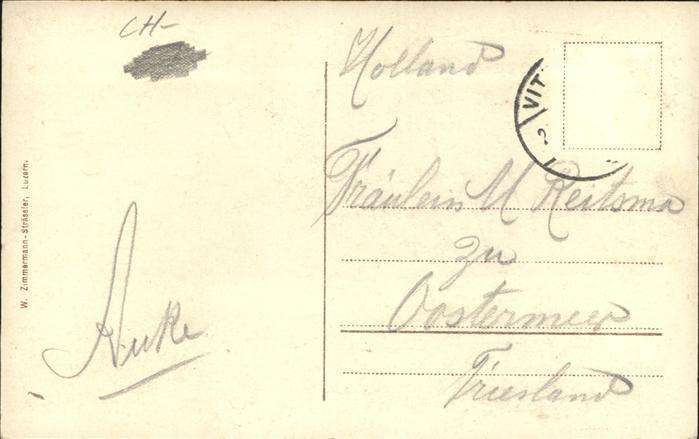 CH-
Holland
VIT
Fräulein M Reitsma
zu
Oostermeer
Friesland
Auke
W. Zimmermann-Strässler, Luzern.